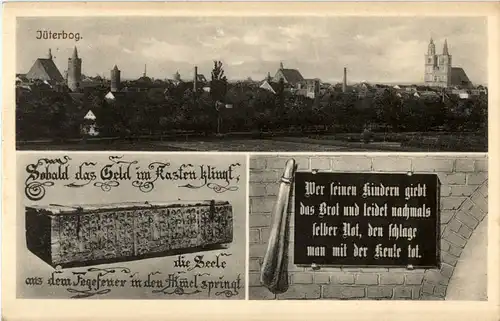 Jüterbog.
Sobald das Geld im Kasten klingt,
die Seele
aus dem Fegefeuer in den Himel springt
Wer seinen Kindern giebt
das Brot und leidet nachmals
selber Not, den schlage
man mit der Keule tot.